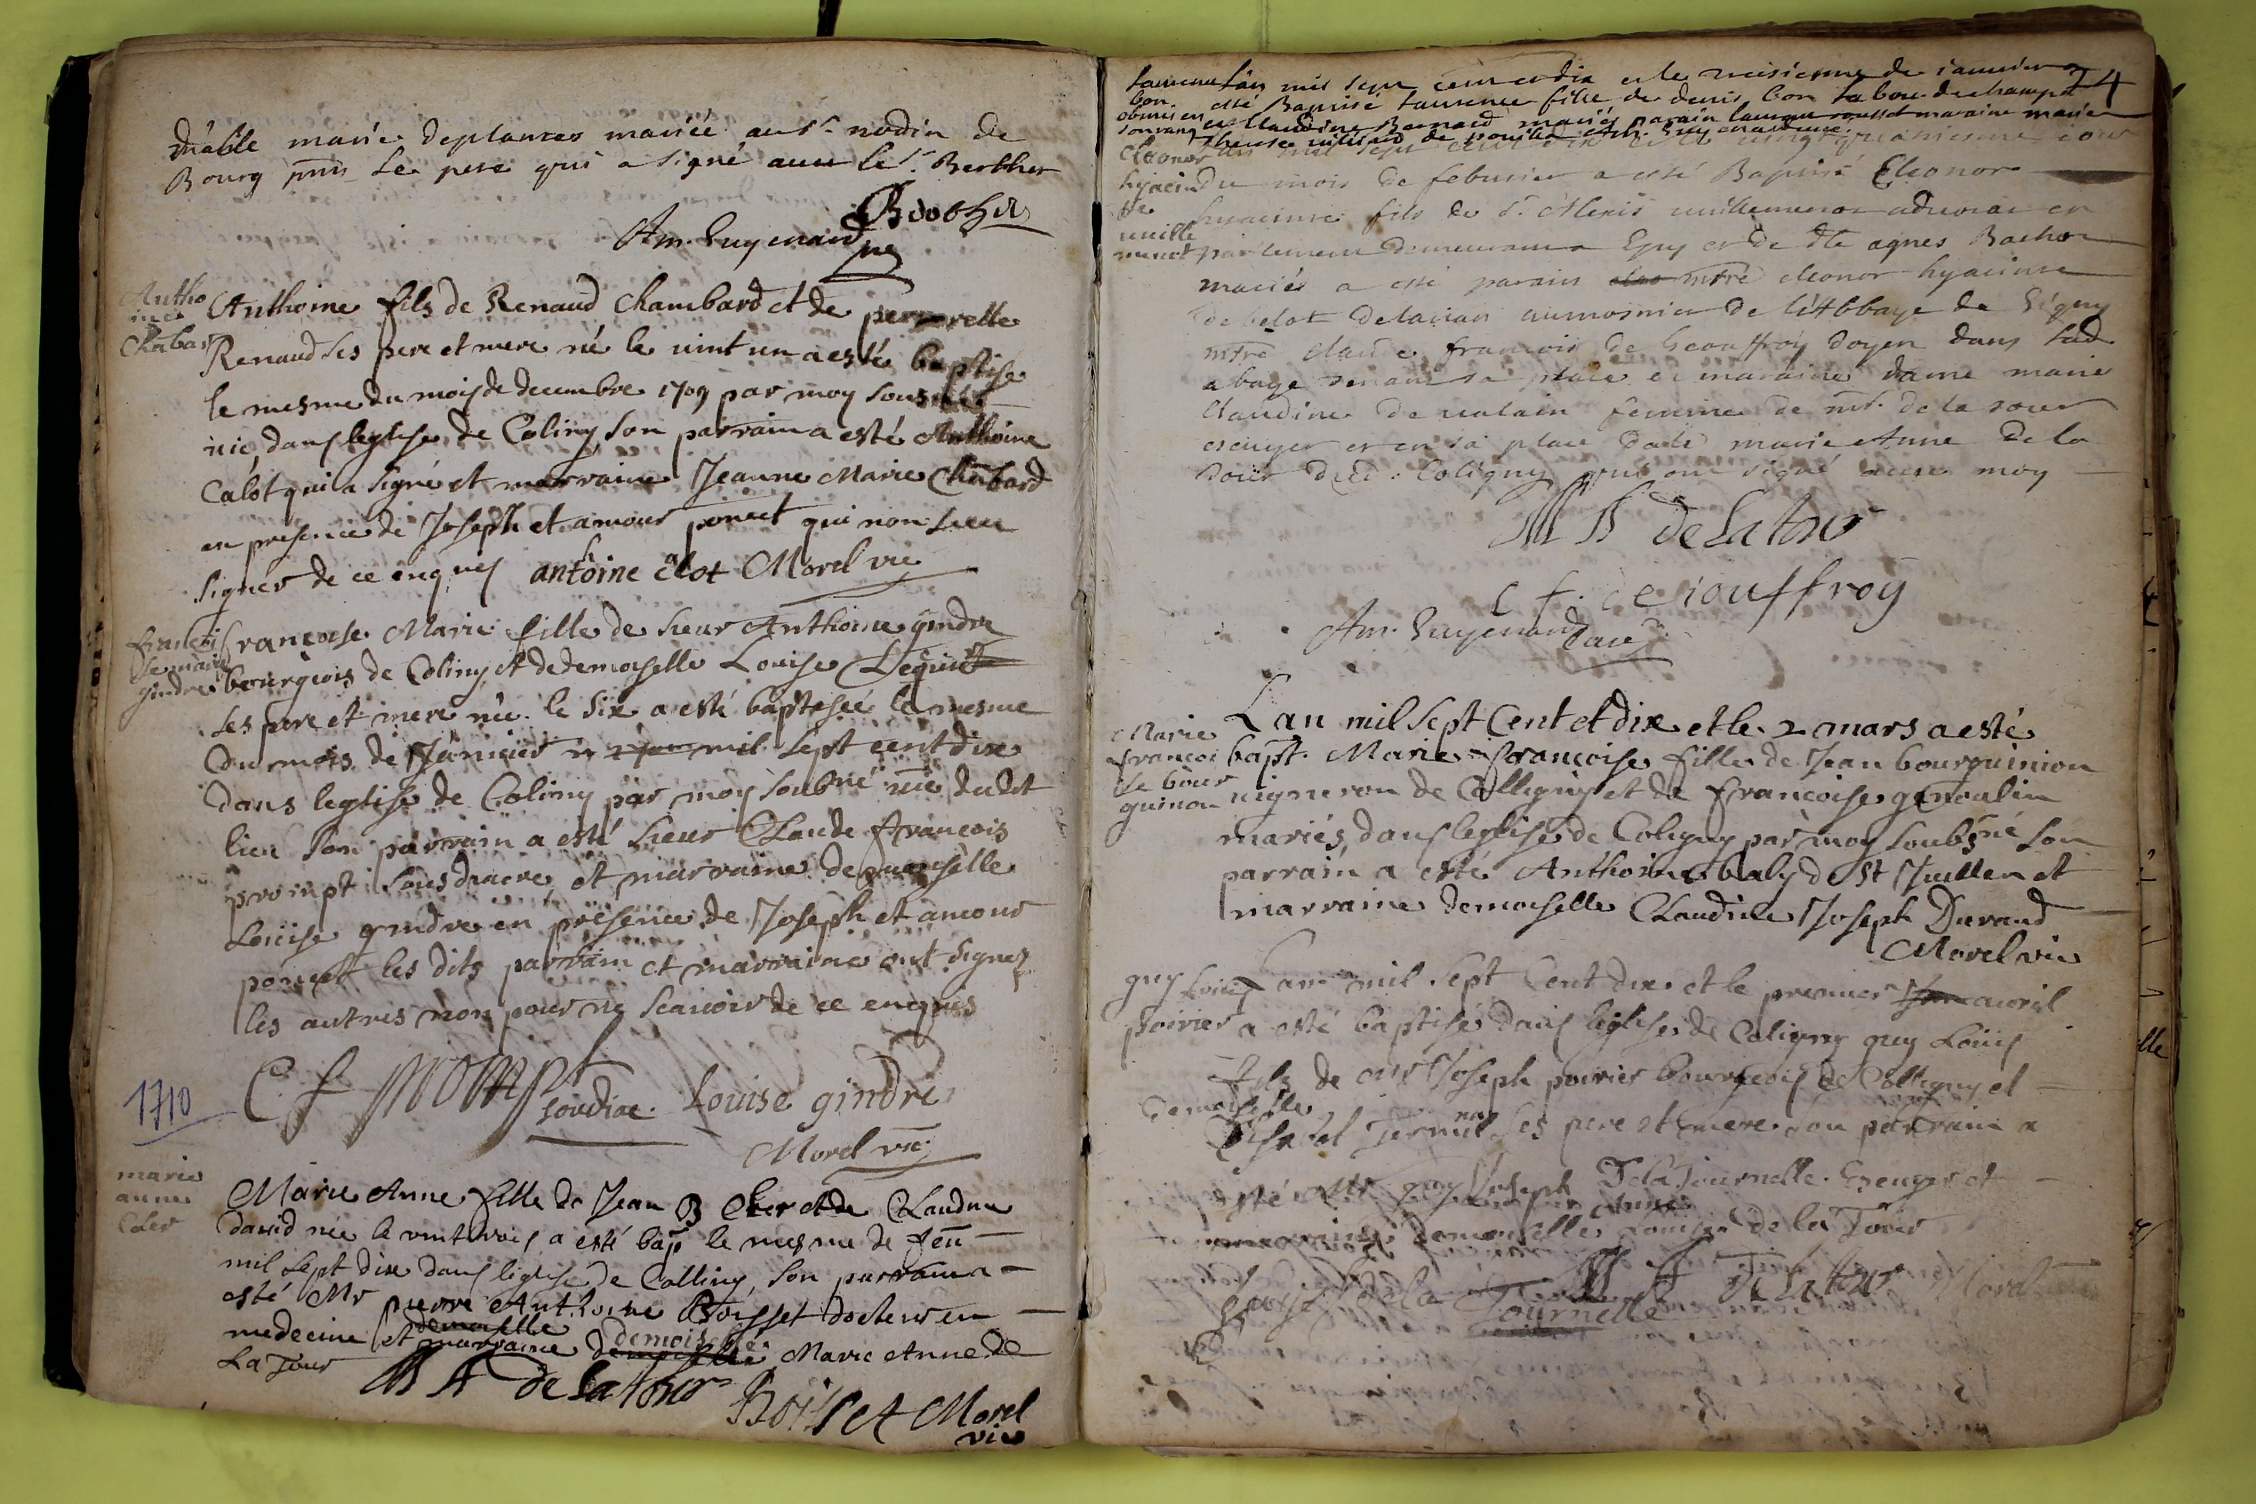 marie deplantes mariée au Sr. nodin de
Bourg pnts le pere qui a signé auec le Sr. Berthet
Berthet
Am. Guymard
Antho
ine
Chabar
Anthoine fils de Renaud Chambard et de perrette
Renaud ses pere et mere né le uint un a esté baptise
le mesme du mois de decembre 1709 par moy
uic dans leglise de Coliny son parrain a esté Anthoine
Calot qui a signé et marraine Jeanne Marie Chabard
en presence de Joseph et amour poncet qui non sceu
signer de ce enquis antoine clot Morel vic
francoi
se marie
gindre
francoise Marie fille de sieur Anthoine gindre
bourgeois de Coliny et de demoiselle Louise
ses pere et mere née le six a esté baptisée le mesme
du mois de Januier mil sept cent dix
dans leglise de Coliny par moy soubné uic dudit
lieu son parrain a esté sieur Claude francois
prompt sousdiacre et marraine demoiselle
Louise gindre en presence de Joseph et amour
poncet les dits parrain et marraine ont signez
les autres non pour ne scauoir de ce enquis
C f prompt soudiac. Louise gindre
1710
Morel vic
marie
anne
Cler
Marie Anne fille de Jean B Cler et de Claudine
dauid née le vintrois a esté bap le mesme de feu
mil sept dix dans leglise de Colliny son parrain a
esté Mr pierre Anthoine Boisset docteur en
medecine et marraine demoiselle Marie Anne de
La Tour
M A de la tour Boisset Morel
vic
24
Lan mil sept cent et dix et le troisieme de januier a
esté Baptisé laurence fille de denis bon
et Claudine Bernard mariés parain
Eleonor
hyacin
te
uuille
menot
du mois de feburier a esté Baptisé Eleonor
hyacinte fils de Sr. Alexis uuillemenot aduocat en
parlement demeurant a et de dlle agnes Bachod
mariés a esté parain mtre eleonor hyacinte
de belot aumosnier de l'Abbaye de Gigny
mtre claude francois de Geouffroy doyen dans lad
abaye tenant sa place et maraine dame marie
Claudine de uatain femme de mr. de la tour
escuyer et en sa place dalle marie Anne de la
tour dud. Coligny qui ont signé auec moy
M A de la tour
C f. de iouffroy
Am. Guymard
Marie
francoi
se bour
guinon
Lan mil sept Cent et dix et le 2 mars a esté
bapt. Marie francoise fille de Jean bourguinion
uigneron de Colligny et de francoise gmoulin
mariés, dans leglise de Coligny par moy soubsné son
parrain a esté Anthoine baly de St Juillen et
marraine demoiselle Claudine Joseph Durand
Morel vic
guy Louis
poirier
Lan mil sept Cent dix et le premier auril
a esté baptisé dans leglise de Coligny guy Louis
fils de Joseph poirier bourgeois de Colligny et
demoiselle
ses pere et mere son parrain a
esté Mr guy Joseph De la Tournelle Escuyer et
Anne
marraine demoiselle Louise de la Tour
M A De la tour Morel
de la Tournelle